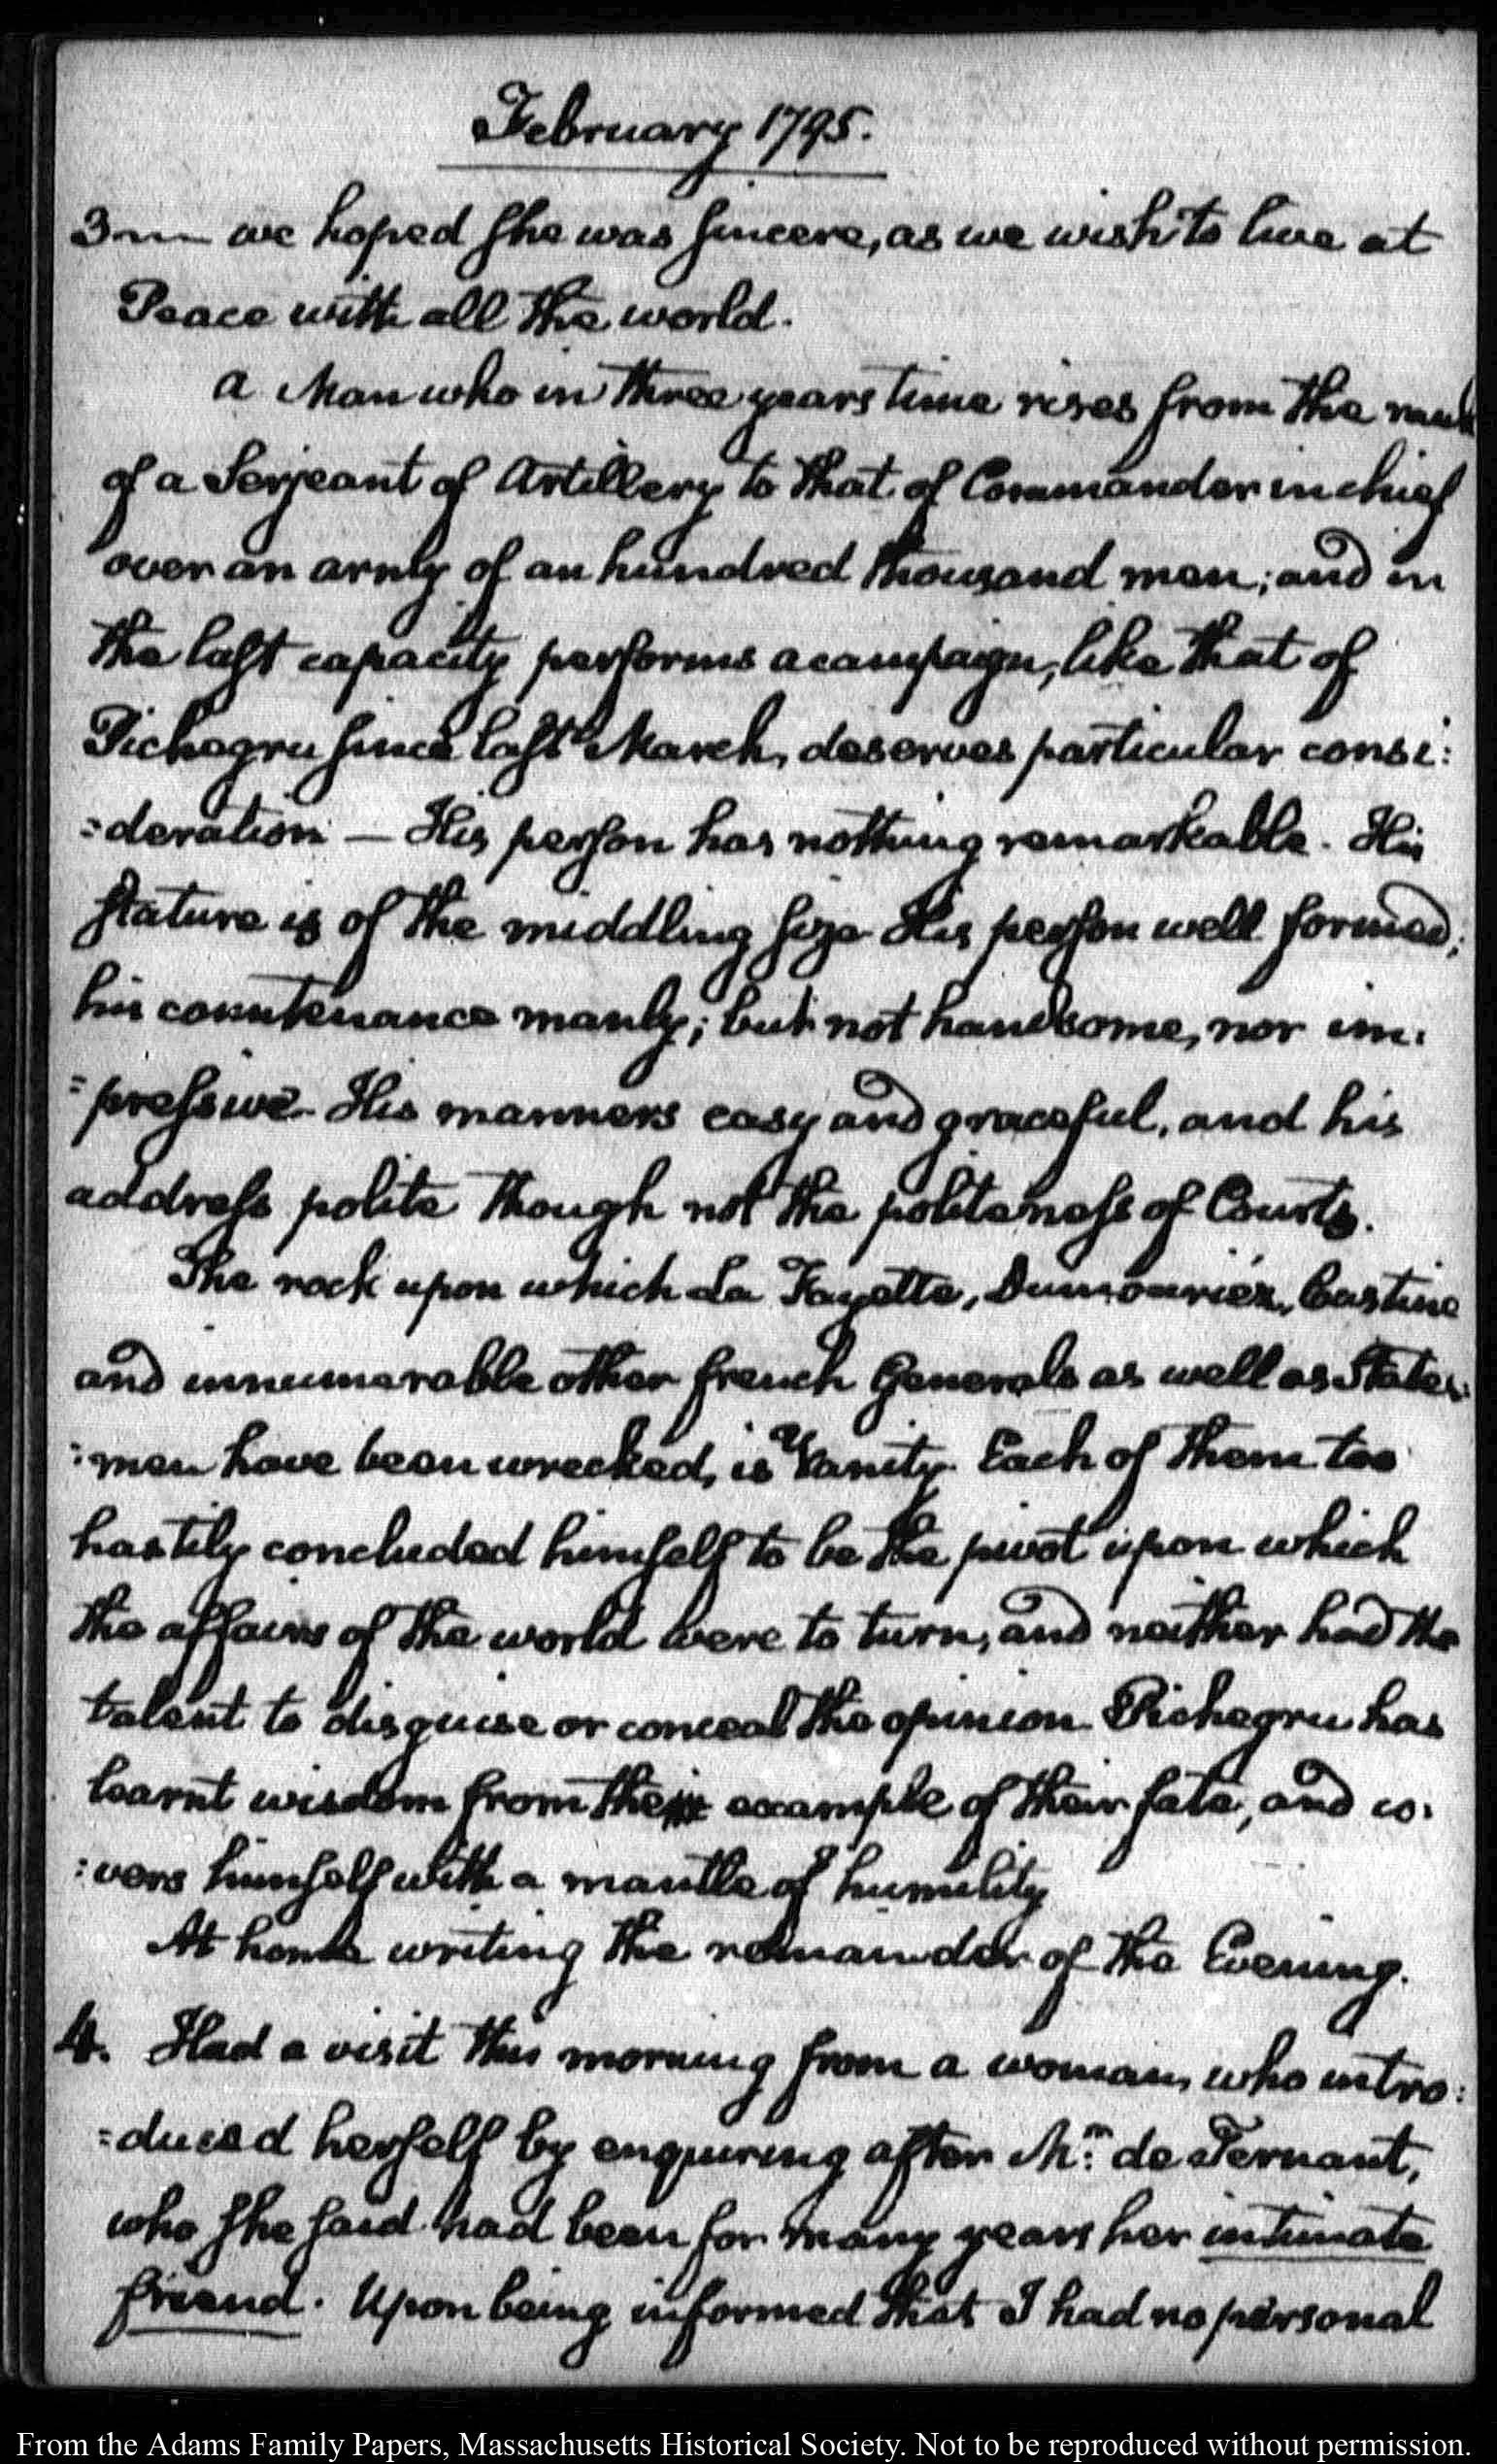 February 1795.
3 — we hoped she was sincere, as we wish to live at
Peace with all the world.
a Man who in three years time rises from the rank
of a Serjeant of Artillery to that of Commander in chief
over an army of an hundred thousand men; and in
the last capacity performs a campaign, like that of
Pichegru since last March, deserves particular consi:
=deration — His person has nothing remarkable. His
stature is of the middling size His person well formed;
his countenance manly; but not handsome, nor im:
=pressive. His manners easy and graceful, and his
address polite though not the politeness of Courts.
The rock upon which La Fayette, Dumouriez, Custine
and innumerable other french Generals as well as States:
:men have been wrecked, is Vanity. Each of them too
hastily concluded himself to be the pivot upon which
the affairs of the world were to turn, and neither had the
talent to disguise or conceal the opinion. Pichegru has
learnt wisdom from the example of their fate, and co:
:vers himself with a mantle of humility
At home writing the remainder of the Evening.
4. Had a visit this morning from a woman, who intro:
=duced herself by enquiring after Mr: de Ternant,
who she said had been for many years her intimate
friend. Upon being informed that I had no personal
From the Adams Family Papers, Massachusetts Historical Society. Not to be reproduced without permission.